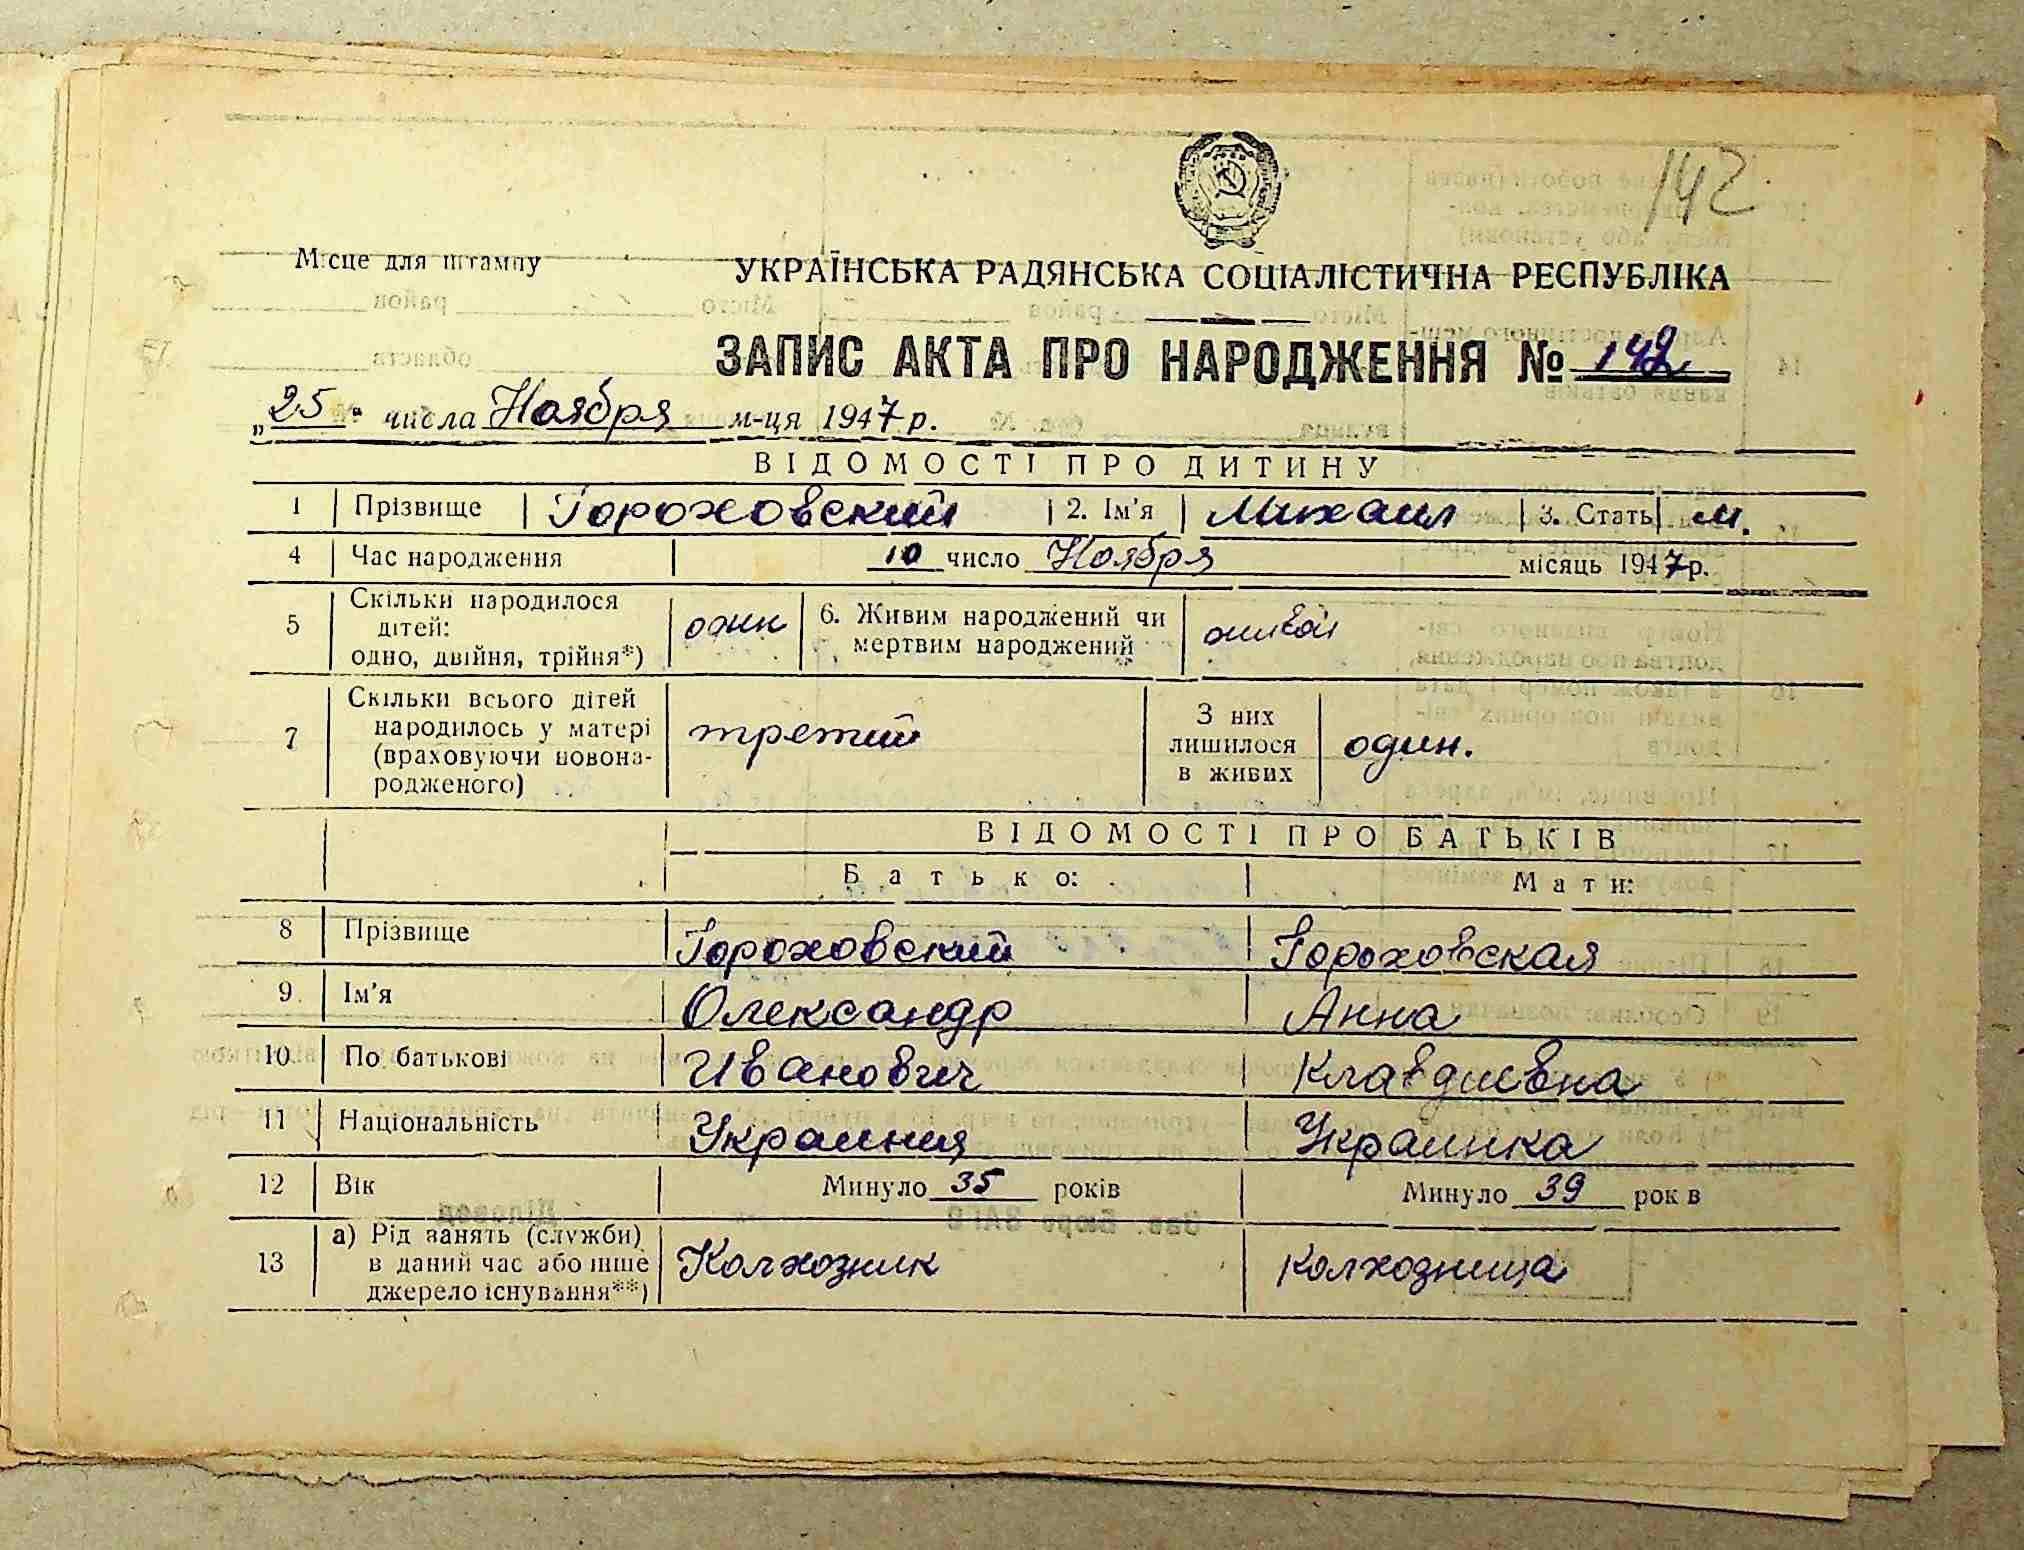 142
Місце для штампу
УКРАЇНСЬКА РАДЯНСЬКА СОЦІАЛІСТИЧНА РЕСПУБЛІКА
ЗАПИС АКТА ПРО НАРОДЖЕННЯ № 142
„25" числа Ноября м-ця 1947 р.
ВІДОМОСТІ ПРО ДИТИНУ
1 Прізвище Гороховский 2. Ім'я Михаил 3. Стать м.
4 Час народження 10 число Ноября місяць 1947 р.
5 Скільки народилося
дітей:
одно, двійня, трійня*)
один
6. Живим народжений чи
мертвим народжений
живой
7 Скільки всього дітей
народилось у матері
(враховуючи новона-
родженого)
третий
З них
лишилося
в живих
один.
ВІДОМОСТІ ПРО БАТЬКІВ
Батько: Мати:
8 Прізвище Гороховский Гороховская
9. Ім'я Олександр Анна
10. По батькові Иванович Клавдиевна
11 Національність Украинец Украинка
12 Вік Минуло 35 років Минуло 39 рок в
13 а) Рід занять (служби)
в даний час або інше
джерело існування**)
Колхозник колхозница